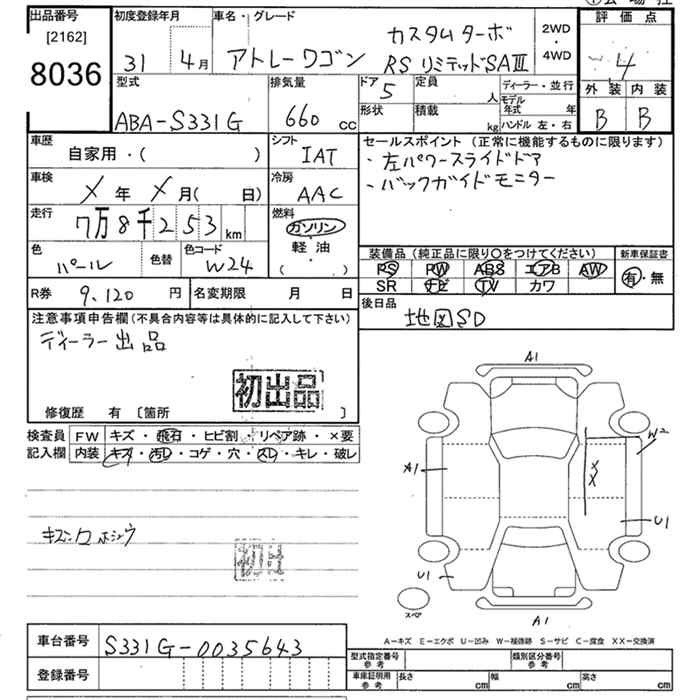 出品番号
[2162]
8036
初度登録年月
31 4月
車名・グレード
アトレーワゴン
カスタムターボ
RS リミテッドSAⅢ
2WD
・
4WD
評価点
4
外装 内装
B B
型式
ABA-S331G
排気量
660 cc
ドア
5
定員
人
形状
積載
kg
ディーラー・並行
モデル年式 年
ハンドル 左・右
車歴
自家用・( )
シフト
IAT
車検
メ 年 メ 月( 日)
冷房
AAC
走行
7万8千253 km
燃料
ガソリン
軽・油
( )
色
パール
色替
色コード
W24
R券 9,120 円
名変期限 月 日
セールスポイント (正常に機能するものに限ります)
・左パワースライドドア
・バックガイドモニター
装備品 (純正品に限り○をつけてください)
PS PW ABS エアB AW
SR ナビ TV カワ
新車保証書
有・無
後日品
地図SD
注意事項申告欄 (不具合内容等は具体的に記入して下さい)
ディーラー出品
初出品
修復歴 有 〔箇所 〕
検査員
記入欄
FW キズ・飛石・ヒビ割・リペア跡・×要
内装 キズ・汚レ・コゲ・穴・スレ・キレ・破レ
初出
A1
W2
A1
U1
U1
A1
スペア
A-キズ E-エクボ U-凹み W-補修跡 S-サビ C-腐食 XX-交換済
車台番号
S331G-0035643
登録番号
型式指定番号
参考
類別区分番号
参考
車庫証明用
参考
長さ cm
幅 cm
高さ cm